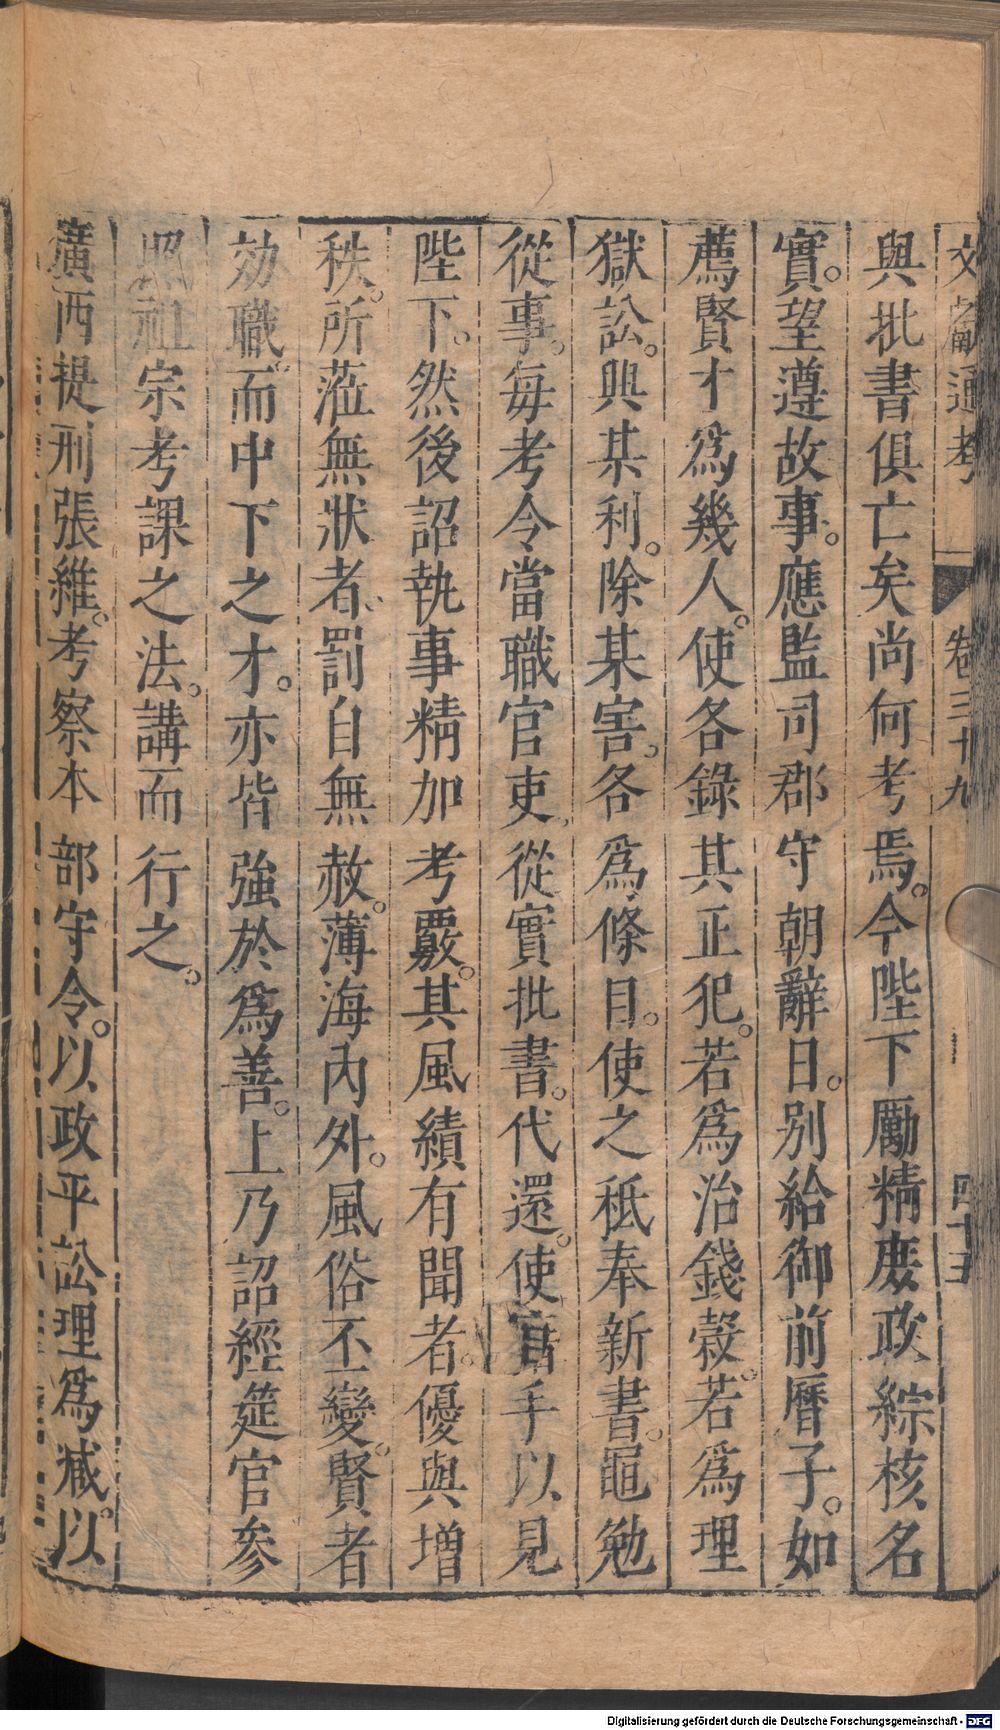 文獻通考 卷三十九 四十五
與批書俱亡矣尚何考焉。今陛下勵精庶政綜核名
實。望遵故事。應監司郡守朝辭日。別給御前曆子。如
薦賢才爲幾人。使各錄其正犯。若爲治錢穀。若爲理
獄訟。興某利。除某害。各爲條目。使之秪奉新書。黽勉
從事。每考令當職官吏從實批書。代還。使官手以見
陛下。然後詔執事精加考覈。其風績有聞者。優與增
秩。所蒞無狀者。罰自無赦。薄海內外。風俗丕變。賢者
効職。而中下之才。亦皆強於爲善。上乃詔經筵官參
照祖宗考課之法。講而行之。
廣西提刑張維。考察本部守令。以政平訟理爲臧。以
Digitalisierung gefördert durch die Deutsche Forschungsgemeinschaft - DFG